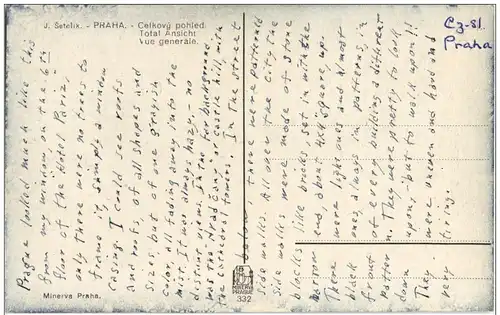 J. Šetelik. - PRAHA. - Celkový pohled.
Total Ansicht
Vue generale.
Cz-81
Praha
Prague looked much like this
from my window, on the 6th
floor of the Hotel Pariz,
only there were no trees to
frame it, simply a window
casing. I could see roofs
and roofs, of all shapes and
sizes, but of one grayish
color, all fading away into the
mist. It was always hazy - no
distant views. In the far background
was the Hradcany or castle hill with
the cathedral towers. In the street
below there were patterned
side walks. All over the city the
side walks were made of stone
blocks like bricks, set in with the
narrow end about 4x4 square, up.
There were light ones and almost
black ones, always in patterns, in
front of every building a different
pattern. They were pretty to look
down upon, but to walk upon!!
They were uneven and hard and
very tiring.
MINERVA
PRAGUE
332
Minerva Praha.